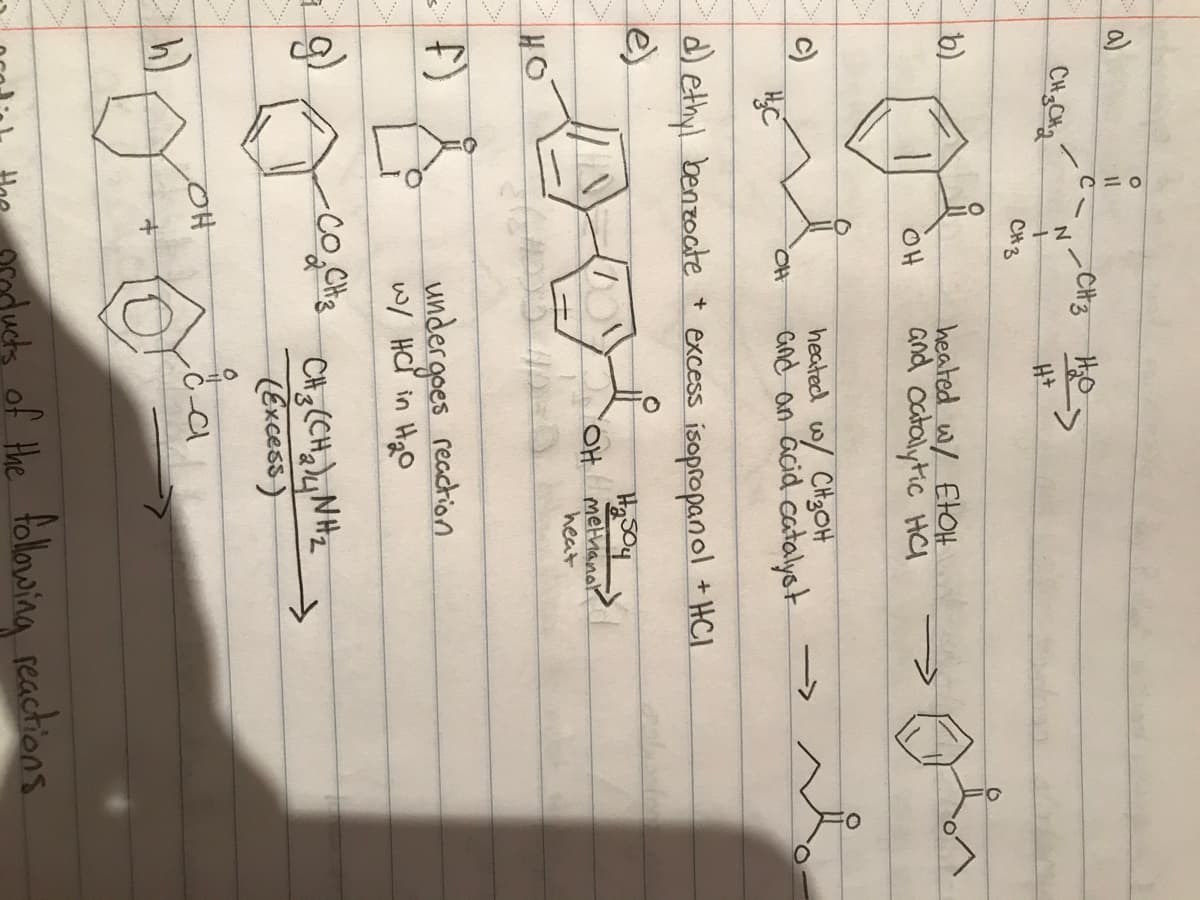 a) O
CH3CH2 - C - N - CH3 H2O
CH3 H+
b) O OH heated w/ EtOH → O O
and catalytic HCl
c) H3C O OH heated w/ CH3OH → O O
and an acid catalyst
d) ethyl benzoate + excess isopropanol + HCl
e) HO O OH H2SO4
methanol
heat
f) O O undergoes reaction
w/ HCl in H2O
g) CO2CH3 CH3(CH2)4NH2
(Excess)
h) OH + O C-Cl →
the products of the following reactions